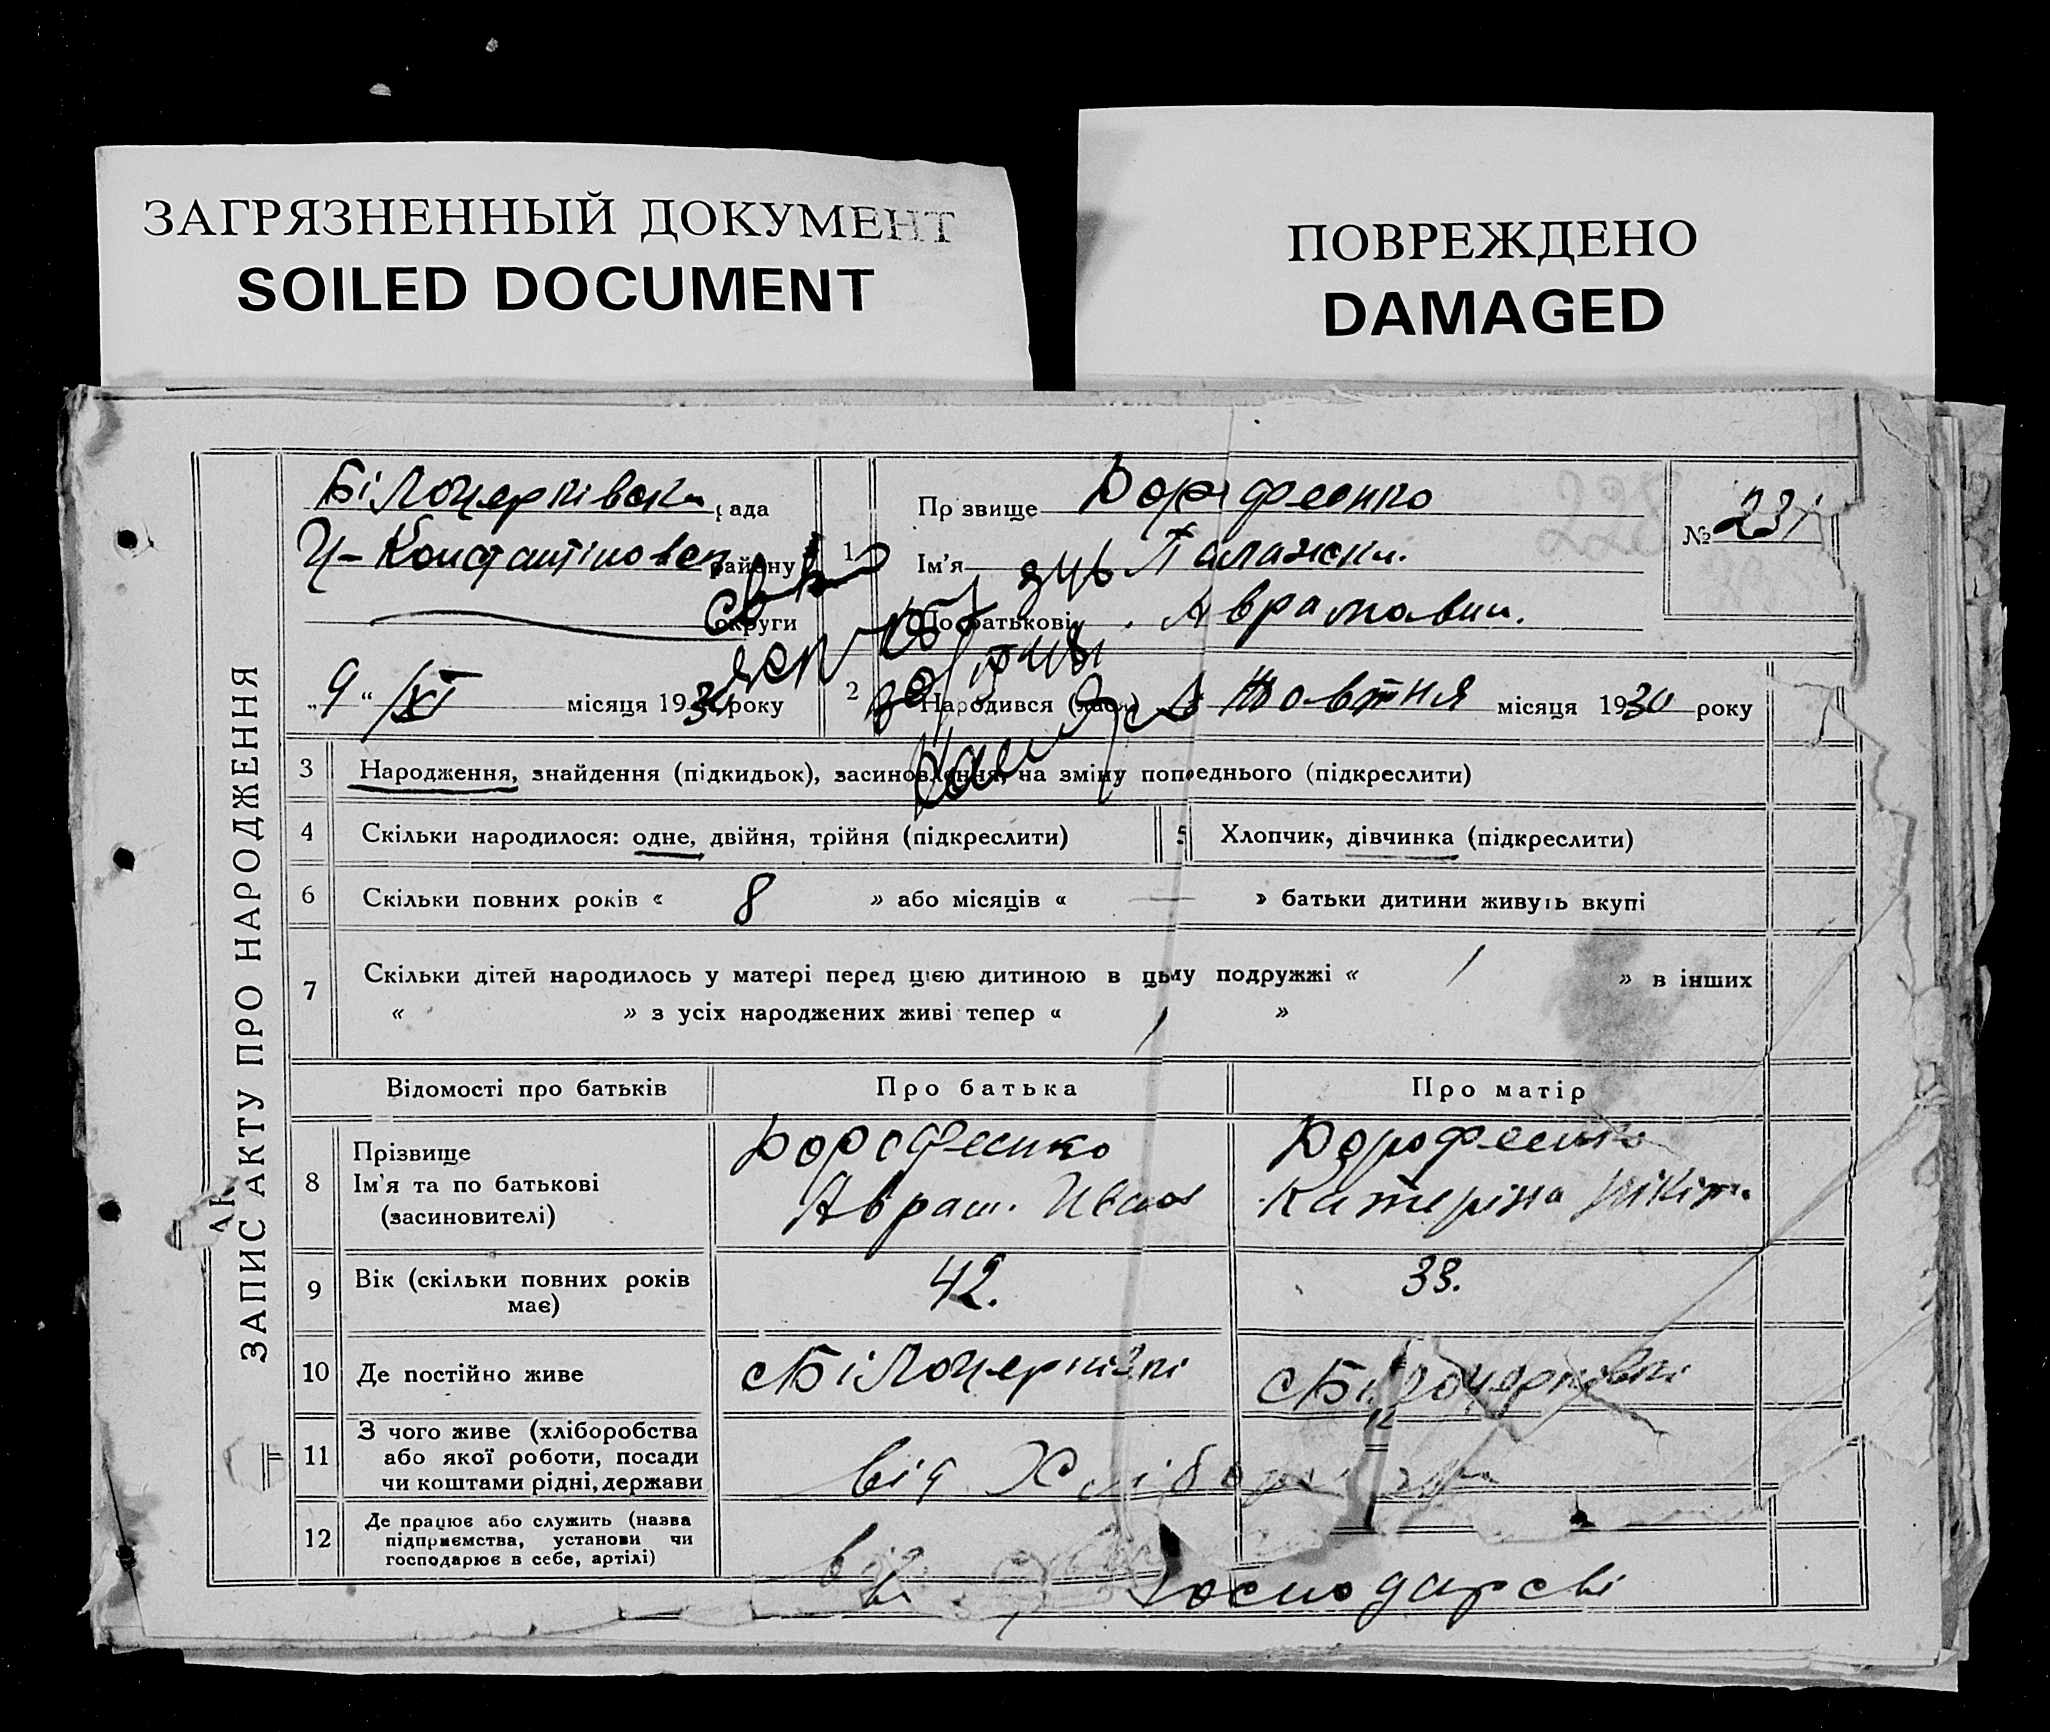 ЗАГРЯЗНЕННЫЙ ДОКУМЕНТ
SOILED DOCUMENT
ПОВРЕЖДЕНО
DAMAGED
ЗАПИС АКТУ ПРО НАРОДЖЕННЯ
Білоцерківська рада
Ч-Константіновськ району
округи
„9“ /XI місяця 1930 року
1
Прізвище Дорофеенко
Ім'я Палажки.
По батькові Аврамовни.
№ 231
228
2
Народився (лась) Жовтня місяця 1930 року
3 Народження, знайдення (підкидьок), засиновлення, на зміну попереднього (підкреслити)
4 Скільки народилося: одне, двійня, трійня (підкреслити)
5 Хлопчик, дівчинка (підкреслити)
6 Скільки повних років « 8 » або місяців « — » батьки дитини живуть вкупі
7 Скільки дітей народилось у матері перед цією дитиною в цьму подружжі « 1 » в інших
« » з усіх народжених живі тепер « 1 »
Відомості про батьків Про батька Про матір
8 Прізвище
Ім'я та по батькові
(засиновителі)
Дорофеенко
Аврам. Иван
Дорофеенко
Катеріна Нікіт.
9 Вік (скільки повних років
має)
42.
33.
10 Де постійно живе
с Білоцерківкі
с Білоцерківкі
11 З чого живе (хліборобства
або якої роботи, посади
чи коштами рідні, держави
від Хлібо
12 Де працює або служить (назва
підприємства, установи чи
господарює в себе, артілі)
в
Господарсві